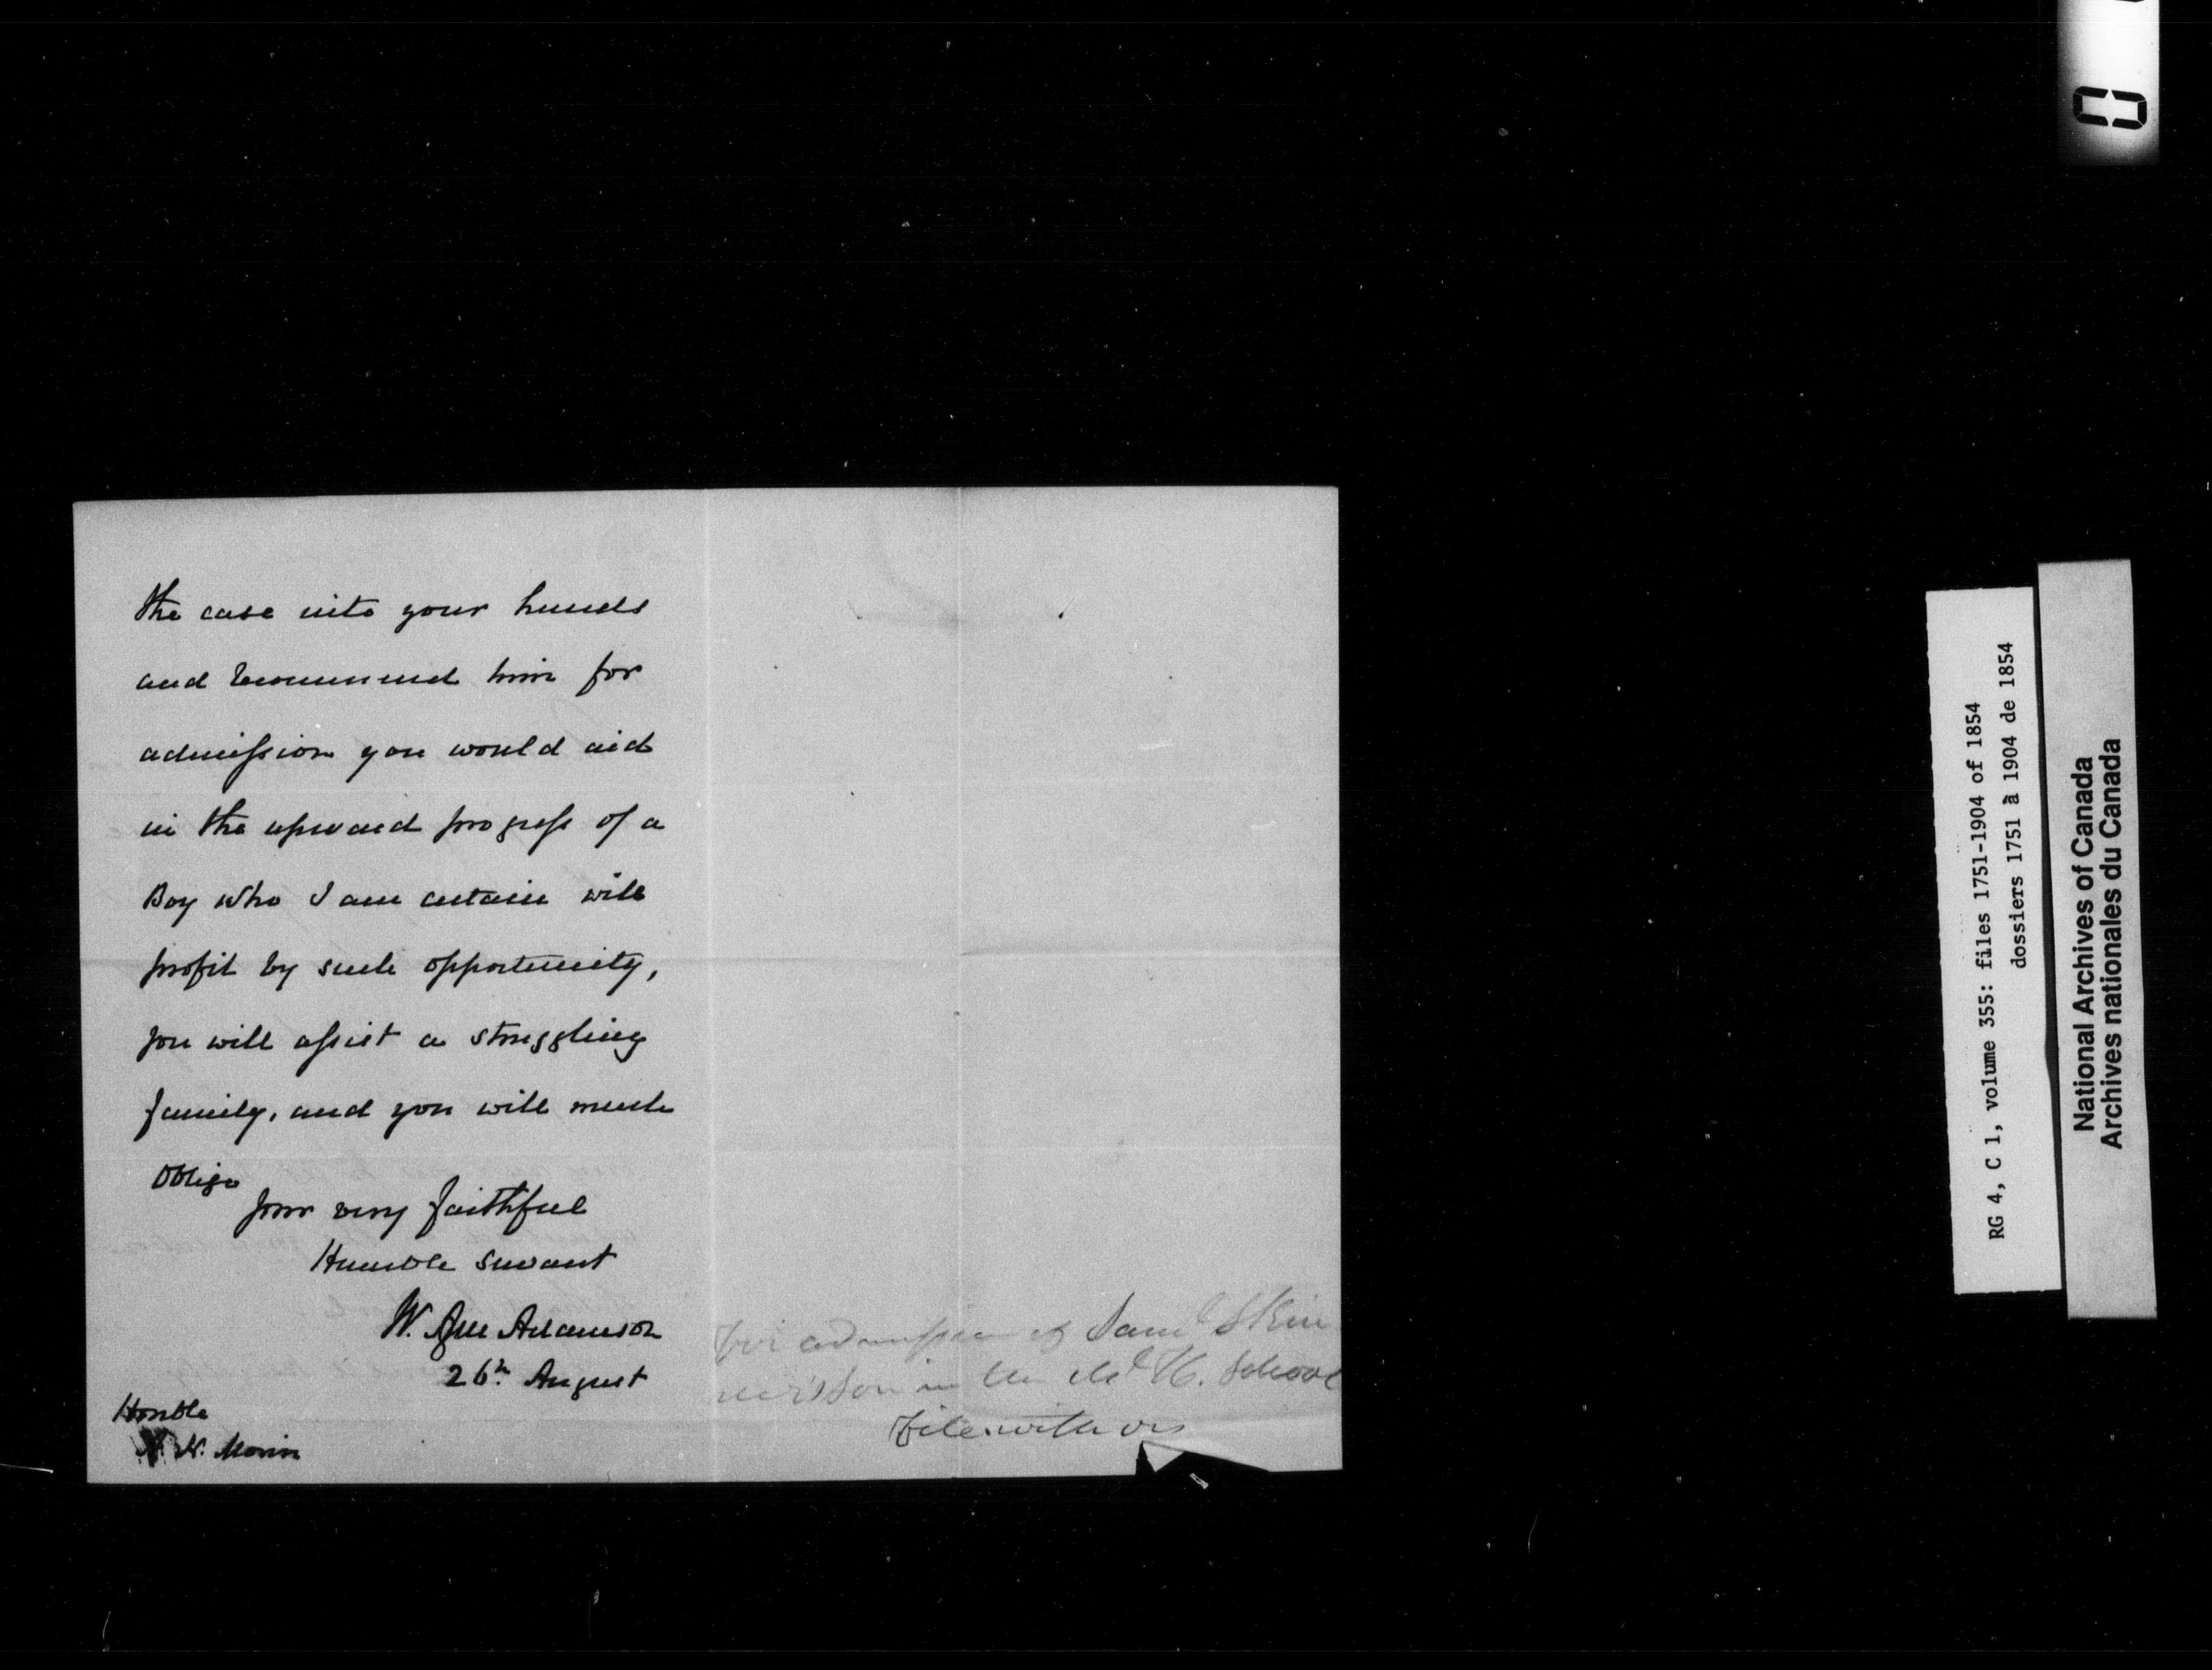 the case into your hands
and recommend him for
admission you would aid
in the upward progress of a
Boy who I am certain will
profit by such opportunity,
you will assist a struggling
family, and you will much
Oblige
your very faithful
Humble servant
W. Agar Adamson
26th August
Honble
A. N. Morin
for admission of Saml Skin
in the School
File with ors
RG 4, C 1, volume 355: files 1751-1904 of 1854
dossiers 1751 à 1904 de 1854
National Archives of Canada
Archives nationales du Canada
0